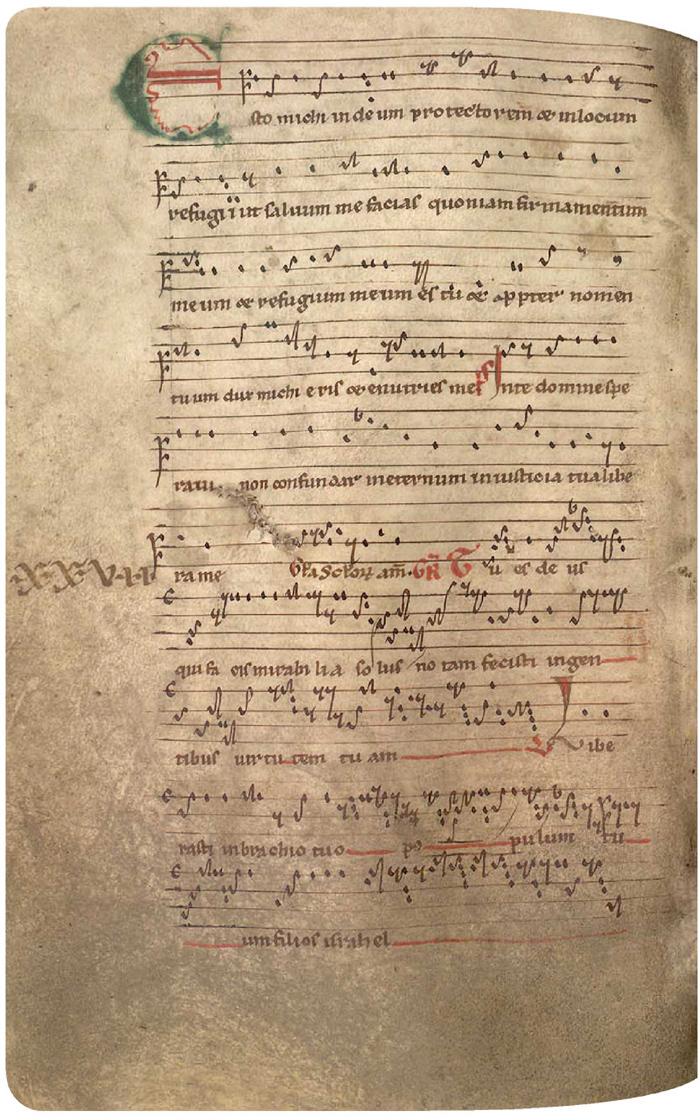 Esto michi in deum protectorem & in locum
refugii ut saluum me facias quoniam firmamentum
meum & refugium meum es tu & appter nomen
tuum dux michi eris & enutries me ps Inte domine spe
raui non confundar ineternum iniusticia tua libe
ra me Gła Sclorꝝ am. GR Tu es de us
qui fa cis mirabi li a solus no tam fecisti ingen
tibus uirtu tem tu am V Libe
rasti inbrachio tuo po pulum tu
um filios israhel
XXVII